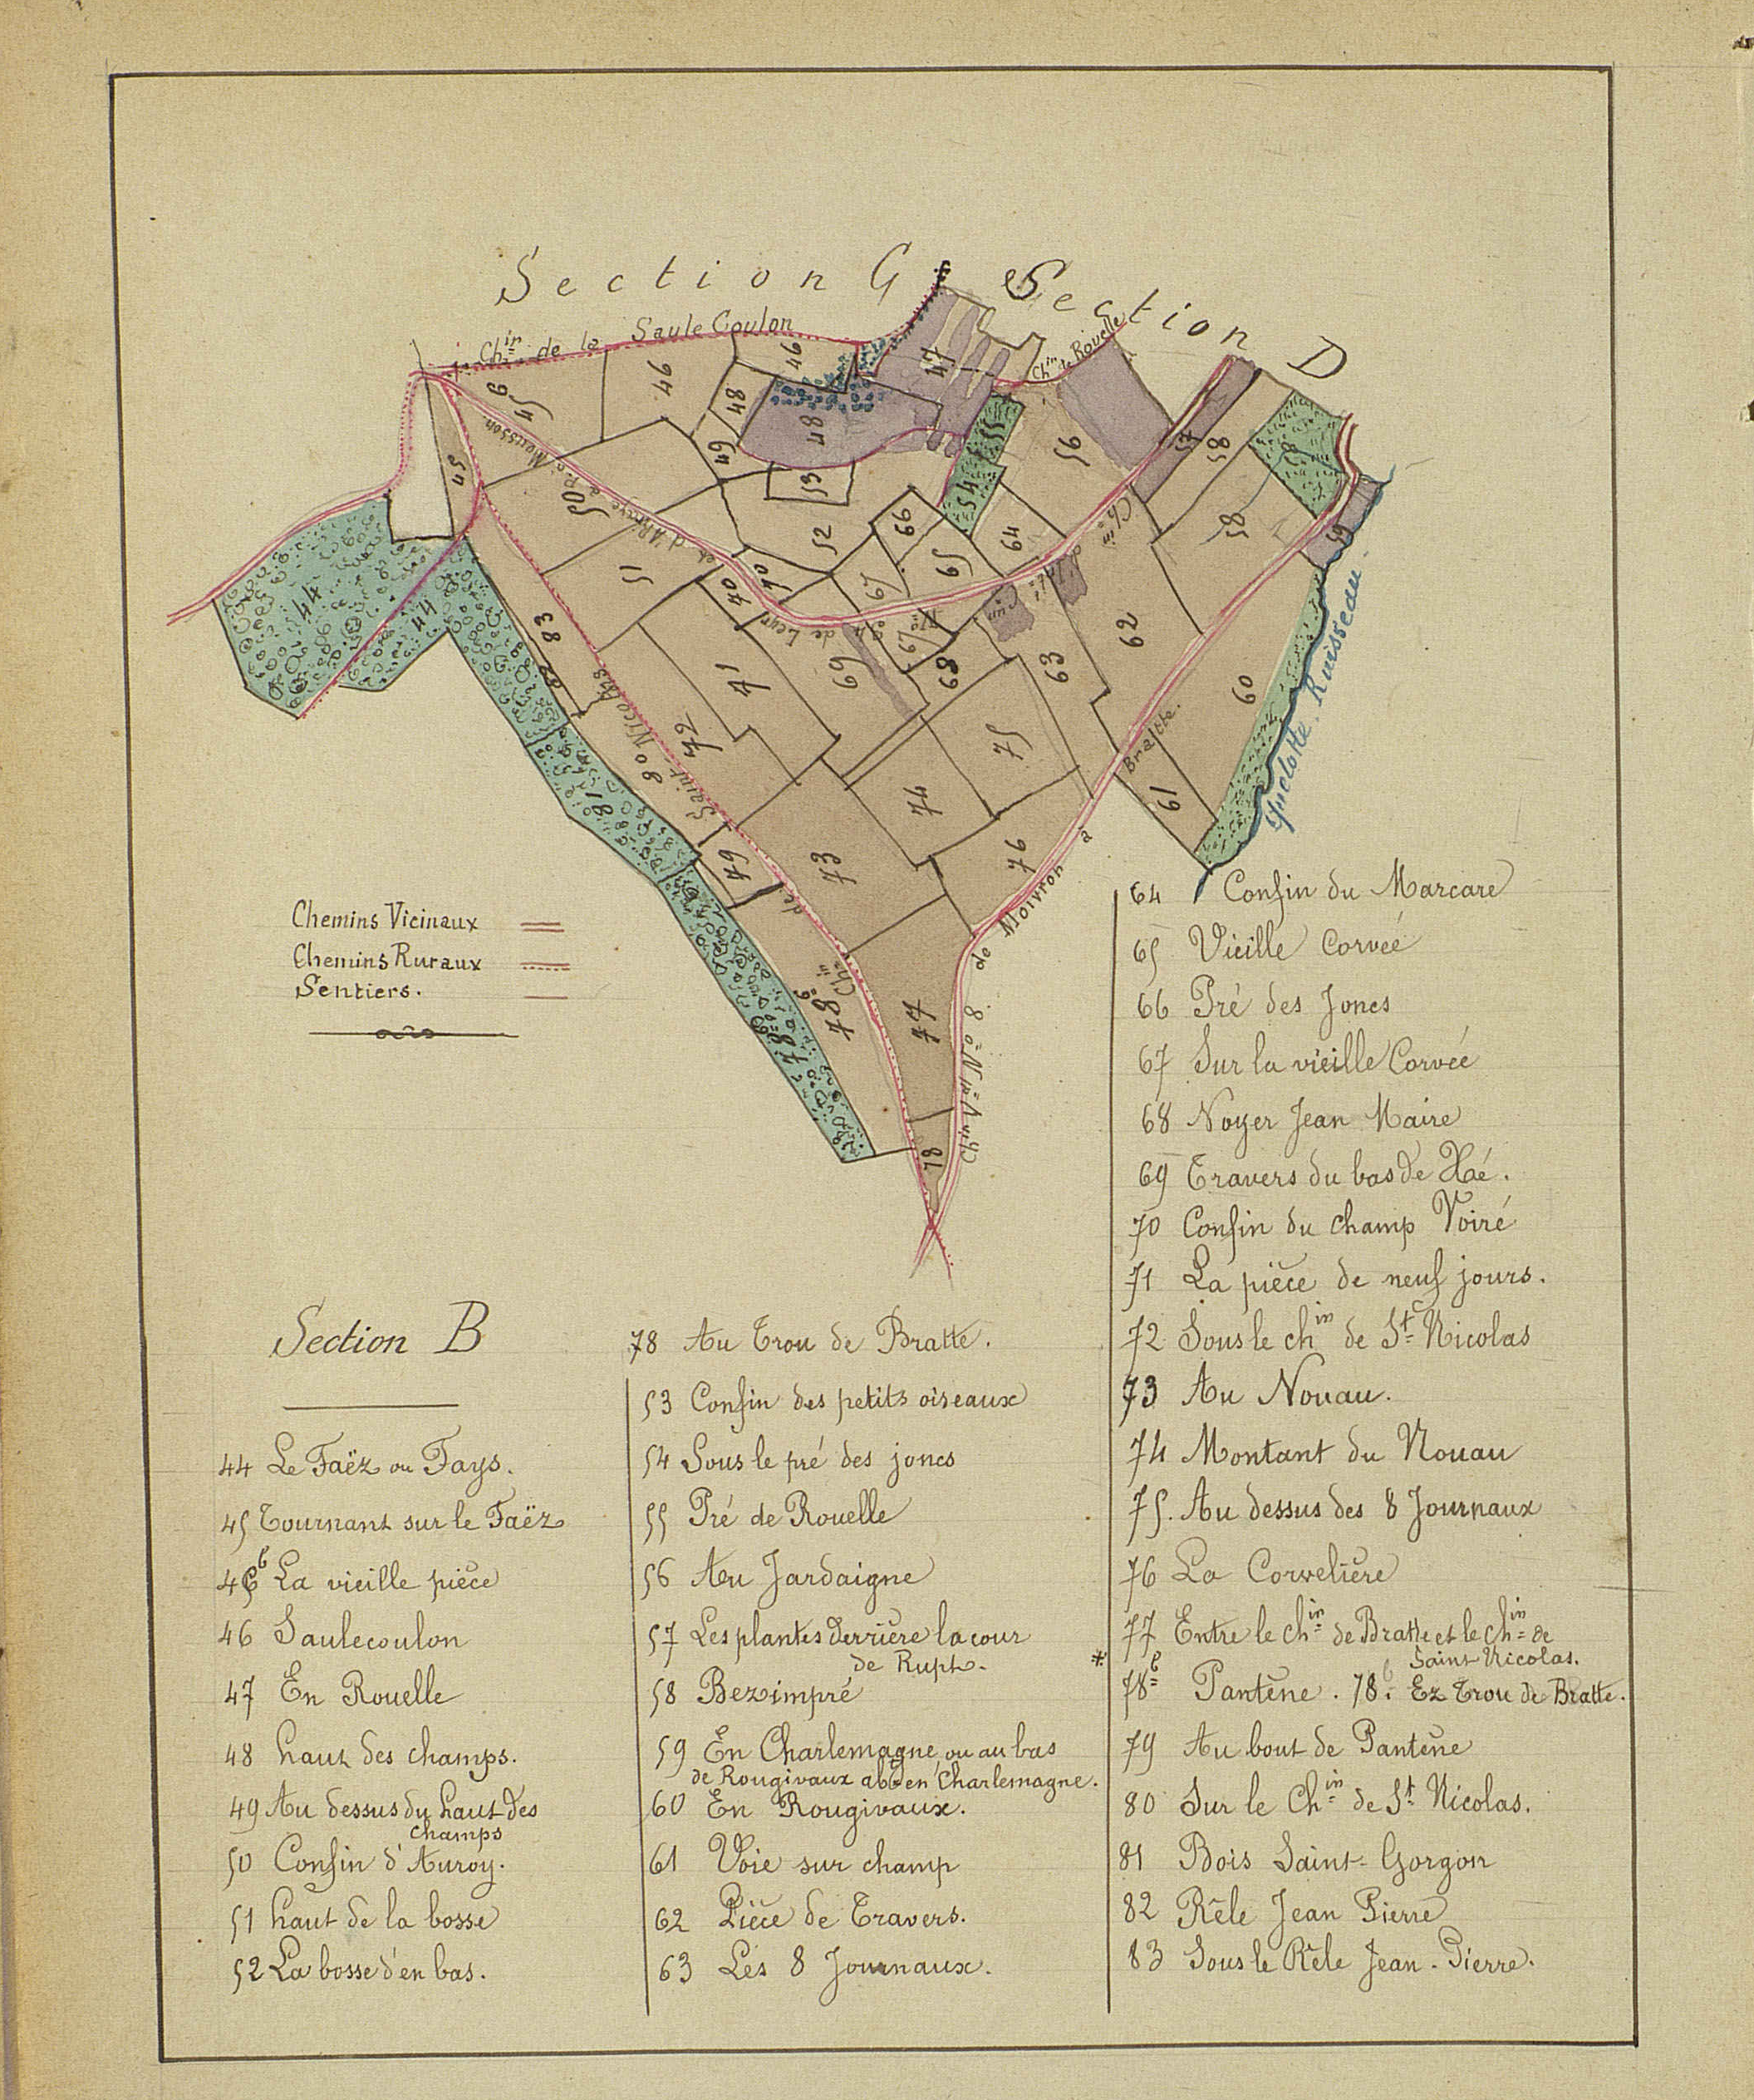 Section G
Section D
Ch.in de la Saule Coulon
Ch.in de Rouelle
46
46
47
45 6
48
48
49
45
50
53
52
66
55
54
56
57
58
58
58
59
51
70
70
67
65
64
44
44
83
82
71
69
67
68
63
62
60
61
72
80
81
75
74
76
73
79
77
78 6
78
78
Saint Nicolas
de
Ch.in
Ch.in
de Leyr
et d'Abaucourt
Ch.in V.al N.o 8 de Moivron à Bratte.
Ruisseau
Chemins Vicinaux
Chemins Ruraux
Sentiers.
Section B
44 Le Faëz ou Fays.
45 Tournant sur le Faëz
45 b La vieille pièce
46 Saulecoulon
47 En Rouelle
48 haut des champs.
49 Au dessus du haut des
champs
50 Confin d'Auroy.
51 haut de la bosse
52 La bosse d'en bas.
78 Au Trou de Bratte.
53 Confin des petits oiseaux
54 Sous le pré des joncs
55 Pré de Rouelle
56 Au Jardaigne
57 Les plantes derrière la cour
de Rupt.
58 Bezimpré
59 En Charlemagne, ou au bas
de Rougivaux en Charlemagne.
60 En Rougivaux.
61 Voie sur champ
62 Pièce de Travers.
63 Les 8 Journaux.
64 Confin du Marcare
65 Vieille Corvée
66 Pré des Joncs
67 Sur la vieille Corvée
68 Noyer Jean Maire
69 Travers du bas de Hé.
70 Confin du champ Voiré
71 La pièce de neuf jours.
72 Sous le ch.in de St Nicolas
73 Au Nouau.
74 Montant du Nouau
75. Au dessus des 8 Journaux
76 La Corvelière
77 Entre le ch.in de Bratte et le ch.in de
Saint Nicolas.
* 78 b Pantène. 78. Ez Trou de Bratte.
79 Au bout de Pantène
80 Sur le Ch.in de St Nicolas.
81 Bois Saint-Gorgon
82 Rêle Jean Pierre
83 Sous le Rêle Jean-Pierre.